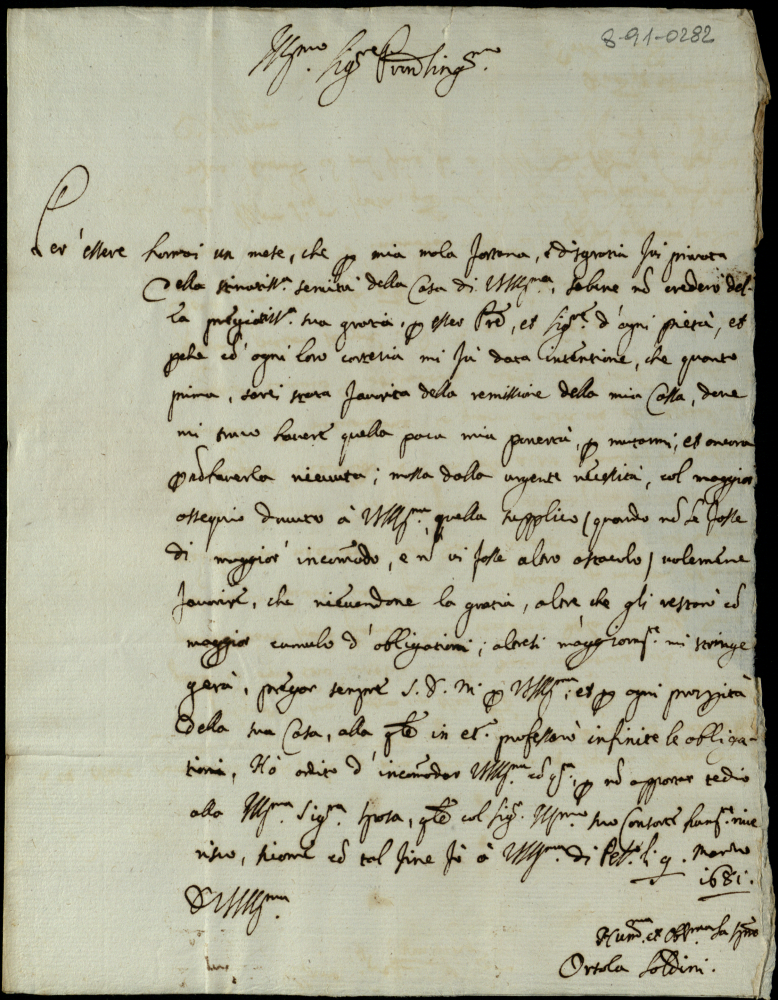 8-91-0282
Ill.mo Sig.re
Per essere hormai un mese, che p mia mala fortuna, e disgratia fui privata
della stimatiss.a servitù della Casa di VSIll.ma, sebene nõ crederò del-
la pregiatiss.a sua gratia, p esser Pre, et Sig.re d'ogni pietà, et
pche cõ ogni loro cortesia mi fù data intentione, che quanto
prima, sarei stata favorita della remissione della mia Cassa, dove
mi trovo havere quella poca mia povertà, p mutarmi, et ancora
p nõ haverla ricevuta; mossa dalla urgente necessità, col maggior
ossequio dovuto à VSIll.ma, quella supplico (quando nõ le fosse
di maggior incomõdo, e nõ vi fosse altro ostacolo)
favorire, che ricevendone la gratia, oltre che gli restarò cõ
maggior cumulo d'obligationi; altresi maggiorm.te mi stringe
gerà, pregar sempre S. D. M. p VSIll.ma, et p ogni prosperità
della sua Casa, alla qle in et.o professarò infinite le obliga-
tioni, Hò ardito d'incomodar VSIll.ma cõ qsta, p nõ apportar tedio
alla Ill.ma Sig.ra sposa, qle col Sig.r Ill.mo suo Consorte rive
risco, sicome cõ tal fine fò à VSIll.ma di li 9. Marzo
1681.
D VSIll.ma
Hum.ma et Obl.ma
Orsola Soldini.